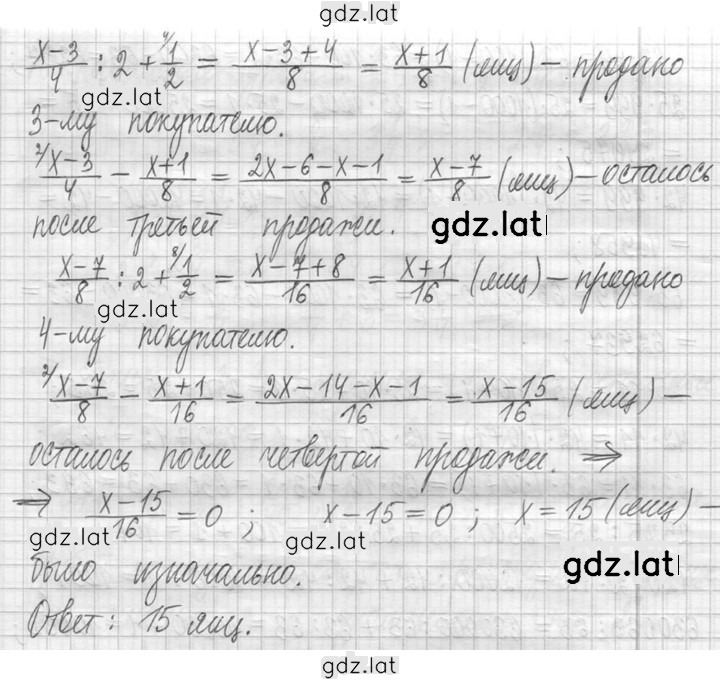 gdz.lat
(x-3)/4 : 2 + ⁴⁄1/2 = (x-3+4)/8 = (x+1)/8 (яиц) - продано
gdz.lat
3-му покупателю.
²⁄(x-3)/4 - (x+1)/8 = (2x-6-x-1)/8 = (x-7)/8 (яиц) - осталось
после третьей продажи. gdz.lat
(x-7)/8 : 2 + ⁸⁄1/2 = (x-7+8)/16 = (x+1)/16 (яиц) - продано
gdz.lat
4-му покупателю.
²⁄(x-7)/8 - (x+1)/16 = (2x-14-x-1)/16 = (x-15)/16 (яиц) -
осталось после четвертой продажи. ⇒
⇒ (x-15)/16 = 0 ; x-15=0 ; x=15 (яиц) -
gdz.lat gdz.lat gdz.lat
было изначально.
Ответ: 15 яиц.
gdz.lat